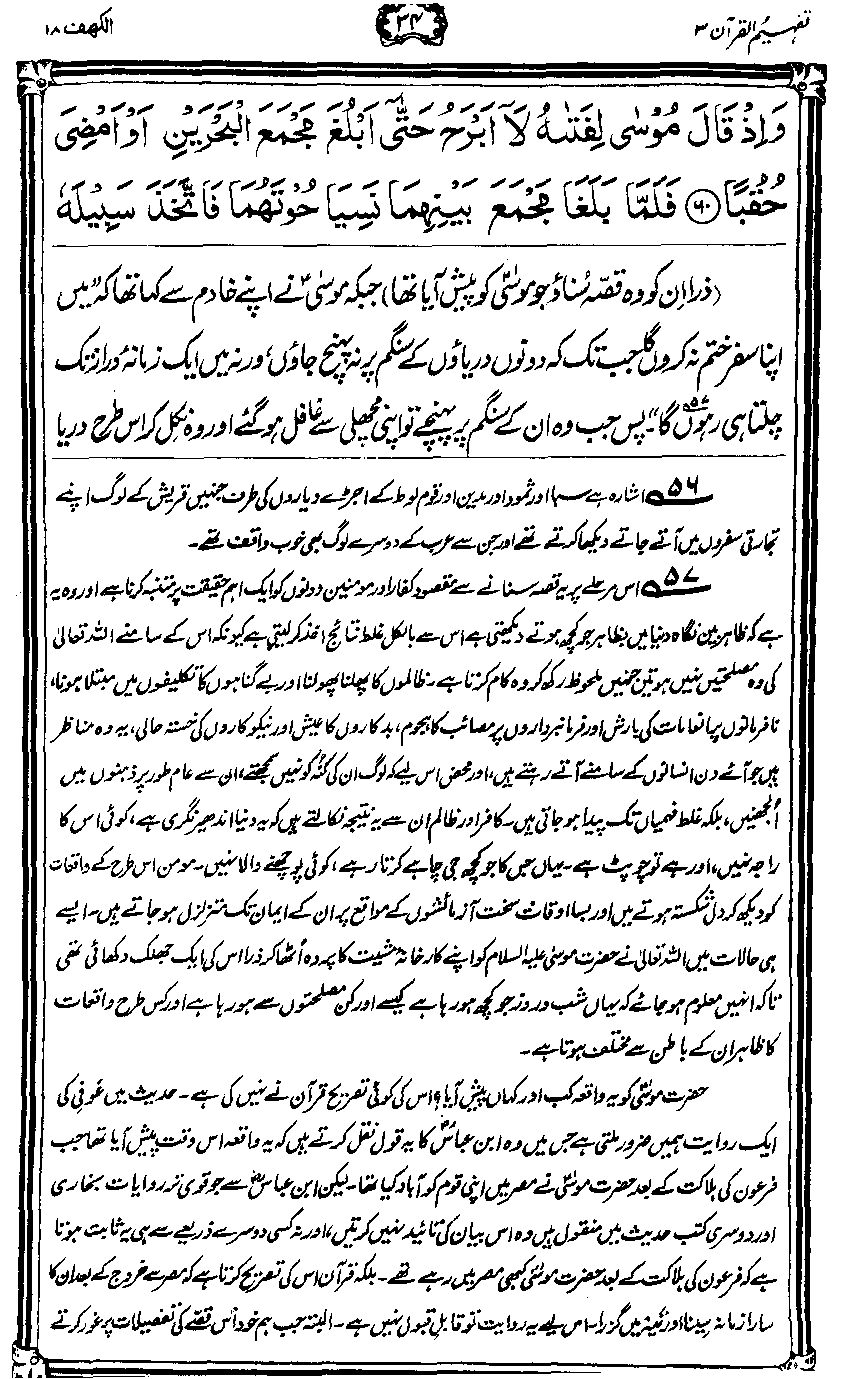 تفہیم القرآن ۳
۳۴
الکہف ۱۸
وَاِذْ قَالَ مُوْسٰى لِفَتٰىهُ لَاۤ اَبْرَحُ حَتّٰۤى اَبْلُغَ مَجْمَعَ الْبَحْرَيْنِ اَوْ اَمْضِىَ
حُقُبًا ﴿۶۰﴾ فَلَمَّا بَلَغَا مَجْمَعَ بَيْنِهِمَا نَسِيَا حُوْتَهُمَا فَاتَّخَذَ سَبِيْلَهٗ
(ذرا ان کو وہ قصّہ سُناؤ جو موسیٰؑ کو پیش آیا تھا) جبکہ موسیٰؑ نے اپنے خادم سے کہا تھا کہ ”میں
اپنا سفر ختم نہ کروں گا جب تک کہ دونوں دریاؤں کے سنگم پر نہ پہنچ جاؤں، ورنہ میں ایک زمانۂ دراز تک
چلتا ہی رہوں گا۵۷۔“ پس جب وہ ان کے سنگم پر پہنچے تو اپنی مچھلی سے غافل ہو گئے اور وہ نکل کر اس طرح دریا
۵۶ اشارہ ہے سبا اور ثمود اور مدین اور قوم لوط کے اجڑے دیاروں کی طرف جنہیں قریش کے لوگ اپنے
تجارتی سفروں میں آتے جاتے دیکھا کرتے تھے اور جن سے عرب کے دوسرے لوگ بھی خوب واقف تھے۔
۵۷ اس مرحلے پر یہ قصہ سنانے سے مقصود کفار اور مومنین دونوں کو ایک اہم حقیقت پر متنبہ کرنا ہے اور وہ یہ
ہے کہ ظاہر بین نگاہ دنیا میں بظاہر جو کچھ ہوتے دیکھتی ہے اس سے بالکل غلط نتائج اخذ کر لیتی ہے کیونکہ اس کے سامنے اللہ تعالیٰ
کی وہ مصلحتیں نہیں ہوتیں جنہیں ملحوظ رکھ کر وہ کام کرتا ہے۔ ظالموں کا پھلنا پھولنا اور بے گناہوں کا تکلیفوں میں مبتلا ہونا،
نافرمانوں پر انعامات کی بارش اور فرمانبرداروں پر مصائب کا ہجوم، بدکاروں کا عیش اور نیکوکاروں کی خستہ حالی، یہ وہ مناظر
ہیں جو آئے دن انسانوں کے سامنے آتے رہتے ہیں، اور محض اس لیے کہ لوگ ان کی کُنہ کو نہیں سمجھتے، ان سے عام طور پر ذہنوں میں
اُلجھنیں، بلکہ غلط فہمیاں تک پیدا ہو جاتی ہیں۔ کافر اور ظالم ان سے یہ نتیجہ نکالتے ہیں کہ یہ دنیا اندھیر نگری ہے، کوئی اس کا
راجہ نہیں، اور ہے تو چوپٹ ہے۔ یہاں جس کا جو کچھ جی چاہے کرتا رہے، کوئی پوچھنے والا نہیں۔ مومن اس طرح کے واقعات
کو دیکھ کر دل شکستہ ہوتے ہیں اور بسا اوقات سخت آزمائشوں کے مواقع پر ان کے ایمان تک متزلزل ہو جاتے ہیں۔ ایسے
ہی حالات میں اللہ تعالیٰ نے حضرت موسیٰ علیہ السلام کو اپنے کارخانۂ مشیت کا پردہ اُٹھا کر ذرا اس کی ایک جھلک دکھائی تھی
تاکہ انہیں معلوم ہو جائے کہ یہاں شب و روز جو کچھ ہو رہا ہے کیسے اور کن مصلحتوں سے ہو رہا ہے اور کس طرح واقعات
کا ظاہر ان کے باطن سے مختلف ہوتا ہے۔
حضرت موسیٰؑ کو یہ واقعہ کب اور کہاں پیش آیا؟ اس کی کوئی تصریح قرآن نے نہیں کی ہے۔ حدیث میں عَوفی کی
ایک روایت ہمیں ضرور ملتی ہے جس میں وہ ابن عباسؓ کا یہ قول نقل کرتے ہیں کہ یہ واقعہ اس وقت پیش آیا تھا جب
فرعون کی ہلاکت کے بعد حضرت موسیٰؑ نے مصر میں اپنی قوم کو آباد کیا تھا۔ لیکن ابن عباسؓ سے جو قوی تر روایات بخاری
اور دوسری کتب حدیث میں منقول ہیں وہ اس بیان کی تائید نہیں کرتیں، اور نہ کسی دوسرے ذریعے سے ہی یہ ثابت ہوتا
ہے کہ فرعون کی ہلاکت کے بعد حضرت موسیٰؑ کبھی مصر میں رہے تھے۔ بلکہ قرآن اس کی تصریح کرتا ہے کہ مصر سے خروج کے بعد ان کا
سارا زمانہ سینا اور تَیہ میں گزرا اس لیے یہ روایت تو قابل قبول نہیں ہے۔ البتہ جب ہم خود اس قصّے کی تفصیلات پر غور کرتے